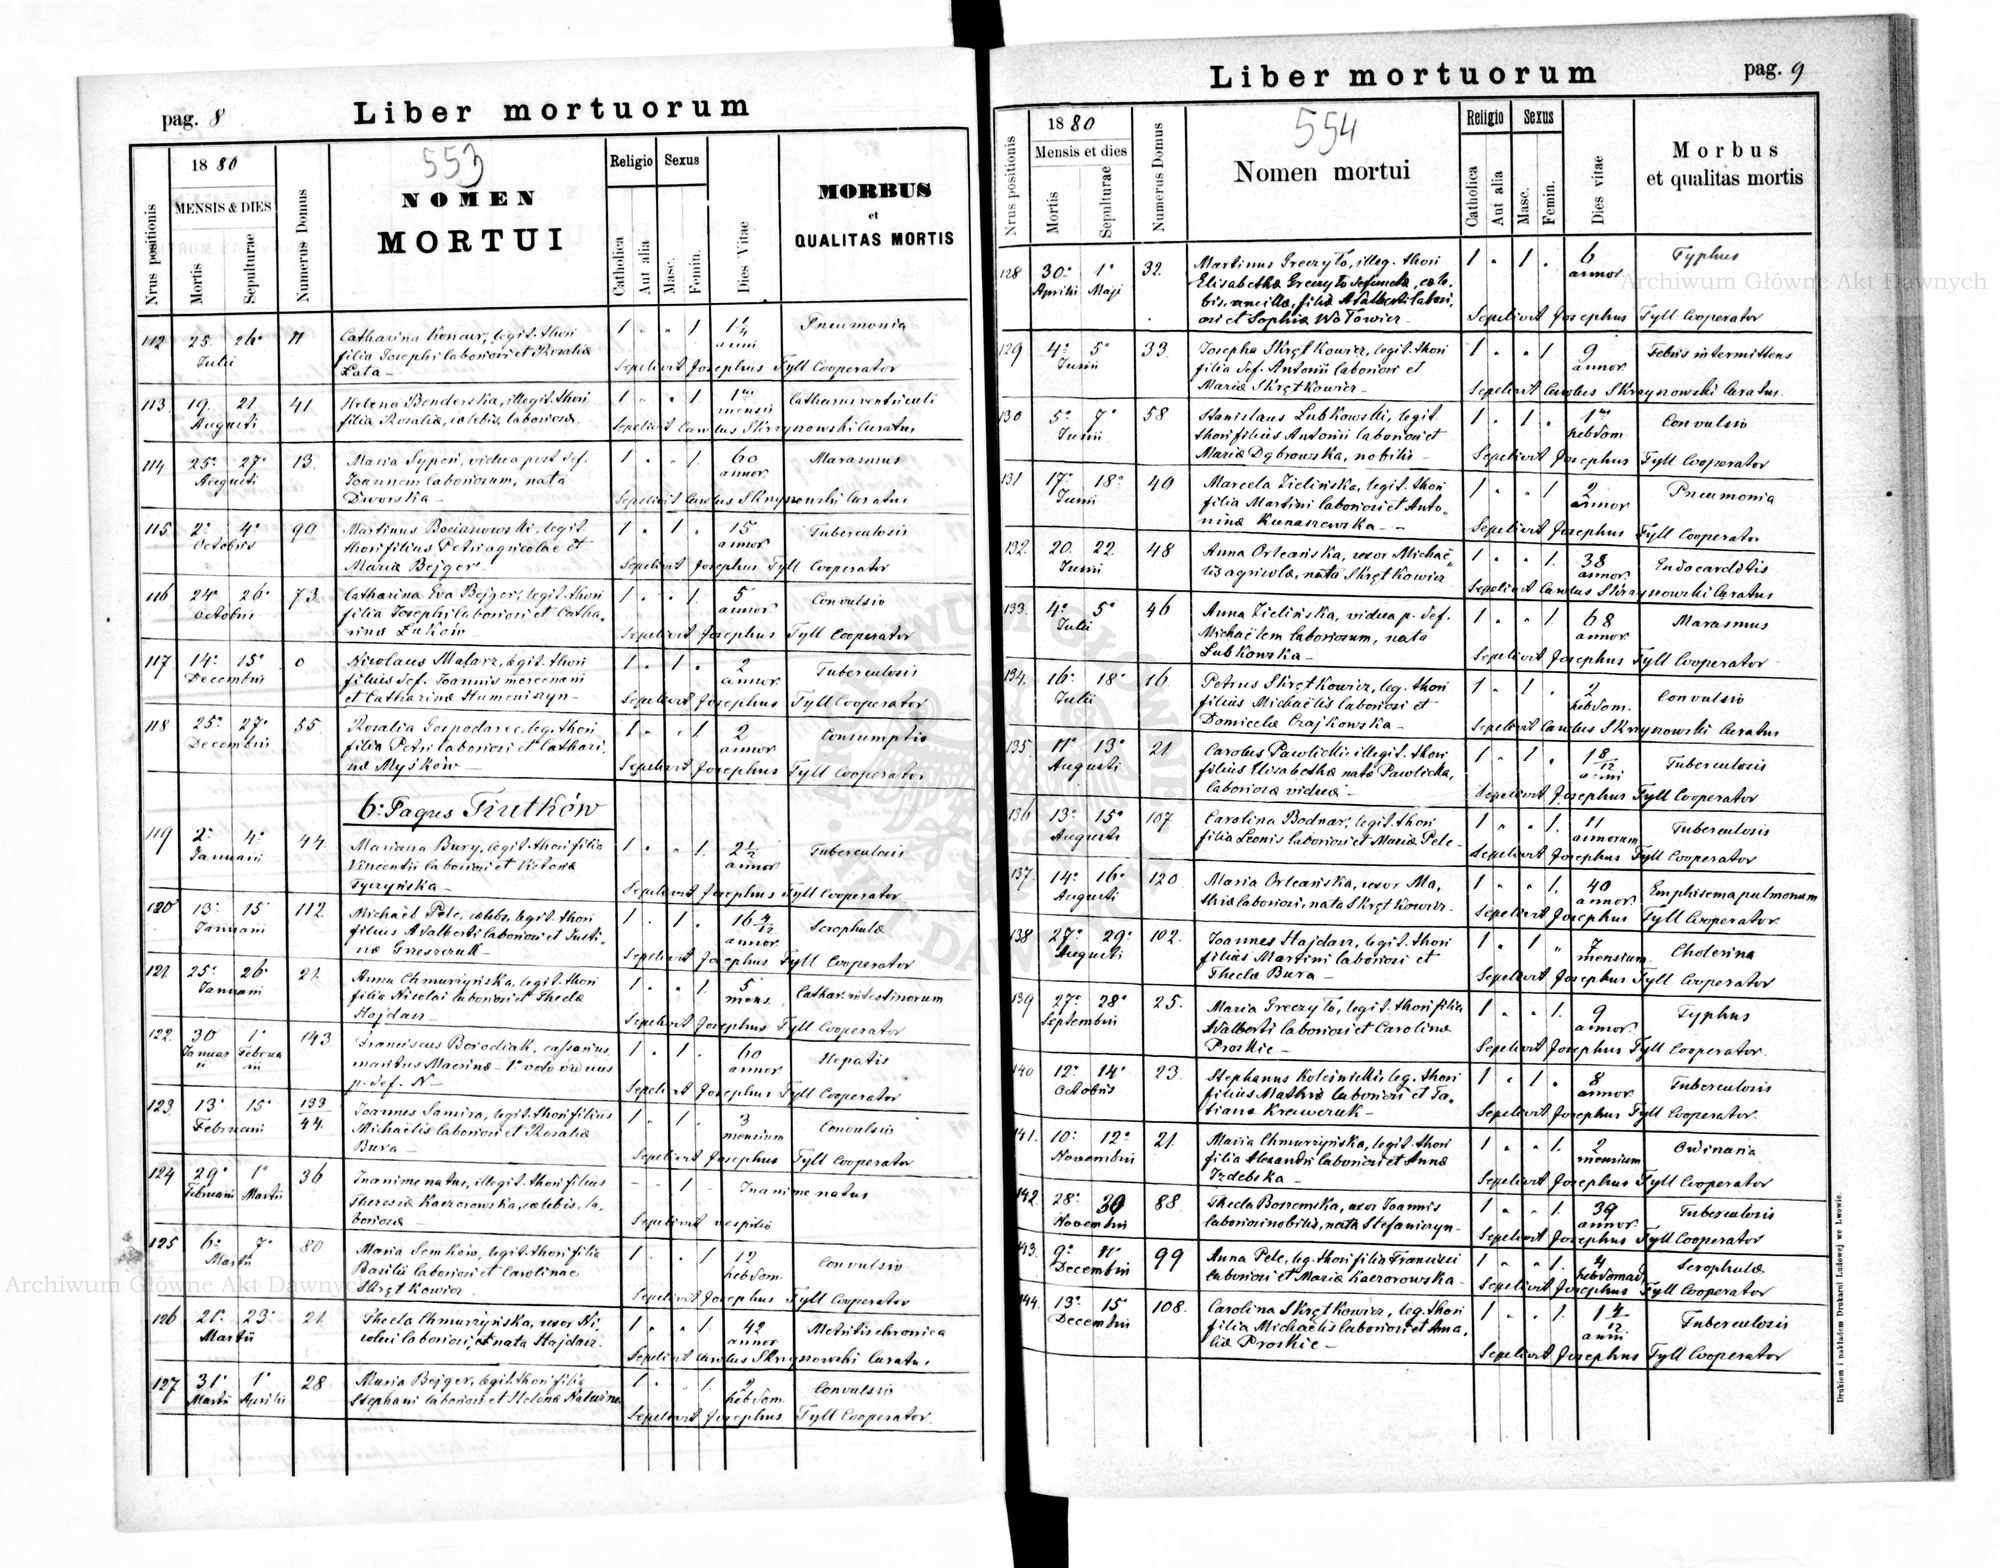 pag. 8
Liber mortuorum
553
1880
MENSIS & DIES
Nrus positionis
Mortis
Sepulturae
Numerus Domus
NOMEN
MORTUI
Religio
Sexus
Catholica
Aut alia
Masc.
Femin.
Dies Vitae
MORBUS
et
QUALITAS MORTIS
112 25 26 11 Catharina Konaur, legit. thori 1 " " 1 1 1/4 anni Pneumonia
Julii filia Josephi laboriosi et Rosaliæ
Lata Sepelivit Josephus Tyll Cooperator
113. 19. 21 41 Helena Benderska, illegit. thori 1 " " 1 1 mensis Catharus ventriculi
Augusti filia Rosaliæ, cælebis, laboriosæ. Sepelivit Carolus Skrzynowski Curatus
114 25. 27. 13. Maria Sypeń, vidua post def. 1 " " 1. 60 annor. Marasmus
Augusti Joannem laboriosum, nata
Dworska Sepelivit Carolus Skrzynowski Curatus
115. 2. 4. 90 Martinus Bocianowski, legit. 1 " 1 " 15 annor. Tuberculosis
Octobris thori filius Petri agricolae et
Mariæ Bejger Sepelivit Josephus Tyll Cooperator
116 24 26 73. Catharina Eva Bejger, legit. thori 1 " " 1. 5 annor. Convulsio
Octobris filia Josephi laboriosi et Catha-
rinæ Luków Sepelivit Josephus Tyll Cooperator
117 14. 15. 0 Nicolaus Malarz, legit. thori 1 " 1 " 2 annor. Tuberculosis
Decembris filius def. Joannis mercenarii
et Catharinæ Humeniszyn Sepelivit Josephus Tyll Cooperator
118 25. 27. 55. Rosalia Gospodarec, leg. thori 1 " " 1 2 annor. Consumptio
Decembris filia Petri laboriosi et Cathari-
næ Myśków Sepelivit Josephus Tyll Cooperator
6. Pagus Tiutków
119 2. 4. 44. Mariana Bury, legit. thori filia 1 " " 1. 2 1/2 annor. Tuberculosis
Januarii Vincentii laboriosi et Victoriæ
Tyczyńska Sepelivit Josephus Tyll Cooperator
120 13. 15 112. Michaël Pele, cælebs, legit. thori 1 " 1 " 16 4/12 annor. Scrophulæ
Januarii filius Adalberti laboriosi et Justi-
næ Greszczuk Sepelivit Josephus Tyll Cooperator
121. 25. 26. 21. Anna Chmurzyńska, legit. thori 1 " " 1. 5 mens. Cathar. intestinorum
Januarii filia Nicolai laboriosi et Theclæ
Hajdasz Sepelivit Josephus Tyll Cooperator
122. 30 1. 143. Franciscus Borodiak, 1 " 1 " 60 annor Hepatis
Januarii Februarii maritus Marinæ 1° voto viduus
p. def. N Sepelivit Josephus Tyll Cooperator
123. 13. 15. 133/44. Joannes Samira, legit. thori filius 1 " 1 " 3 mensium Convulsio
Februarii Michaëlis laboriosi et Rosaliæ
Bura Sepelivit Josephus Tyll Cooperator
124 29. 1. 36 Inanime natus, illegit. thori filius - - 1 " Inanime natus
Februarii Martii Theresiæ Kaczorowska, cælebis, la-
boriosæ Sepelivit vespilio
125 6. 7. 80 Maria Semków, legit. thori filia 1 " " 1 12 hebdom. Convulsio
Martii Basilii laboriosi et Carolinae
Skrętkowicz Sepelivit Josephus Tyll Cooperator
126 21. 23. 21. Thecla Chmurzyńska, uxor Ni- 1 " " 1. 42 annor. Metritis chronica
Martii colai laboriosi, nata Hajdasz. Sepelivit Carolus Skrzynowski Curatus
127 31. 1. 28 Maria Bejger, legit. thori filia 1 " " 1. 2 hebdom. Convulsio
Martii Aprilis Stephani laboriosi et Helenæ Sepelivit Josephus Tyll Cooperator.
Liber mortuorum
pag. 9
554
1880
Mensis et dies
Nrus positionis
Mortis
Sepulturae
Numerus Domus
Nomen mortui
Religio
Sexus
Catholica
Aut alia
Masc.
Femin.
Dies vitae
Morbus
et qualitas mortis
128 30. 1. 32. Martinus Greczyło, illeg. thori 1 " 1 " 6 annor Typhus
Aprilis Maji Elisabethæ Greczyło defunctæ, cæle-
bis, ancillæ, filiæ Adalberti labori-
osi et Sophiæ Wołowicz Sepelivit Josephus Tyll Cooperator
129 4. 5. 33. Josepha Skrętkowicz, legit. thori 1 " " 1 9 annor. Febris intermittens
Junii filia def. Antonii laboriosi et
Mariæ Skrętkowicz Sepelivit Carolus Skrzynowski Curatus.
130 5. 7. 58 Stanislaus Lubkowski, legit. 1 " 1 " 1 hebdom. Convulsio
Junii thori filius Antonii laboriosi et
Mariæ Dąbrowska, nobilis Sepelivit Josephus Tyll Cooperator
131 17. 18. 40 Marcela Zielińska, legit. thori 1 " " 1 2 annor Pneumonia
Junii filia Martini laboriosi et Anto-
ninæ Kunaszewska Sepelivit Josephus Tyll Cooperator
132. 20. 22. 48 Anna Orleańska, uxor Michaë- 1 " " 1. 38 annor. Endocarditis
Junii lis agricolæ, nata Skrętkowicz Sepelivit Carolus Skrzynowski Curatus
133. 4. 5. 46 Anna Zielińska, vidua p. def. 1 " " 1 68 annor. Marasmus
Julii Michaëlem laboriosum, nata
Lubkowska Sepelivit Josephus Tyll Cooperator
134. 16. 18. 16. Petrus Skrętkowicz, leg. thori 1 " 1 " 2 hebdom. Convulsio
Julii filius Michaëlis laboriosi et
Domicelæ Czajkowska Sepelivit Carolus Skrzynowski Curatus
135. 11. 13. 21 Carolus Pawlicki, illegit. thori 1 " 1 " 1 8/12 anni Tuberculosis
Augusti filius Elisabethæ nata Pawlicka,
laboriosæ viduæ Sepelivit Josephus Tyll Cooperator
136 13. 15. 107 Carolina Bodnar, legit. thori 1 " " 1. 11 annorum Tuberculosis
Augusti filia Leonis laboriosi et Mariæ Pele Sepelivit Josephus Tyll Cooperator
137. 14. 16. 120. Maria Orleańska, uxor Ma- 1 " " 1. 40 annor. Emphisema pulmonum
Augusti thiæ laboriosi, nata Skrętkowicz. Sepelivit Josephus Tyll Cooperator.
138 27. 29. 102. Joannes Hajdasz, legit. thori 1 " 1 " 7 mensium Cholerina
Augusti filius Martini laboriosi et
Theclæ Bura Sepelivit Josephus Tyll Cooperator
139 27. 28. 25. Maria Greczyło, legit. thori filia 1 " " 1. 9 annor. Typhus
Septembris Adalberti laboriosi et Carolinæ
Proskie Sepelivit Josephus Tyll Cooperator.
140 12. 14. 23. Stephanus Koleśnicki, leg. thori 1 " 1 " 8 annor. Tuberculosis
Octobris filius Mathiæ laboriosi et Ta-
tianæ Krawczuk Sepelivit Josephus Tyll Cooperator.
141. 10. 12. 21. Maria Chmurzyńska, legit. thori 1 " " 1. 2 mensium Ordinaria
Novembris filia Alexandri laboriosi et Annæ
Izdebska Sepelivit Josephus Tyll Cooperator
142. 28. 30 88 Thecla Boszemska, uxor Joannis 1 " " 1. 39 annor. Tuberculosis
Novembris laboriosi nobilis, nata Stefaniszyn Sepelivit Josephus Tyll Cooperator
143. 9. 11. 99 Anna Pele, leg. thori filia Francisci 1 " " 1. 4 hebdomad. Scrophulæ
Decembris laboriosi et Mariæ Kaczorowska Sepelivit Josephus Tyll Cooperator
144. 13. 15 108. Carolina Skrętkowicz, leg. thori 1 " " 1. 1 4/12 anni Tuberculosis
Decembris filia Michaëlis laboriosi et Ama-
liæ Proskie Sepelivit Josephus Tyll Cooperator
Drukiem i nakładem Drukarni Ludowej we Lwowie.
Archiwum Główne Akt Dawnych
Archiwum Główne Akt Dawnych
ARCHIWUM GŁÓWNE AKT DAWNYCH